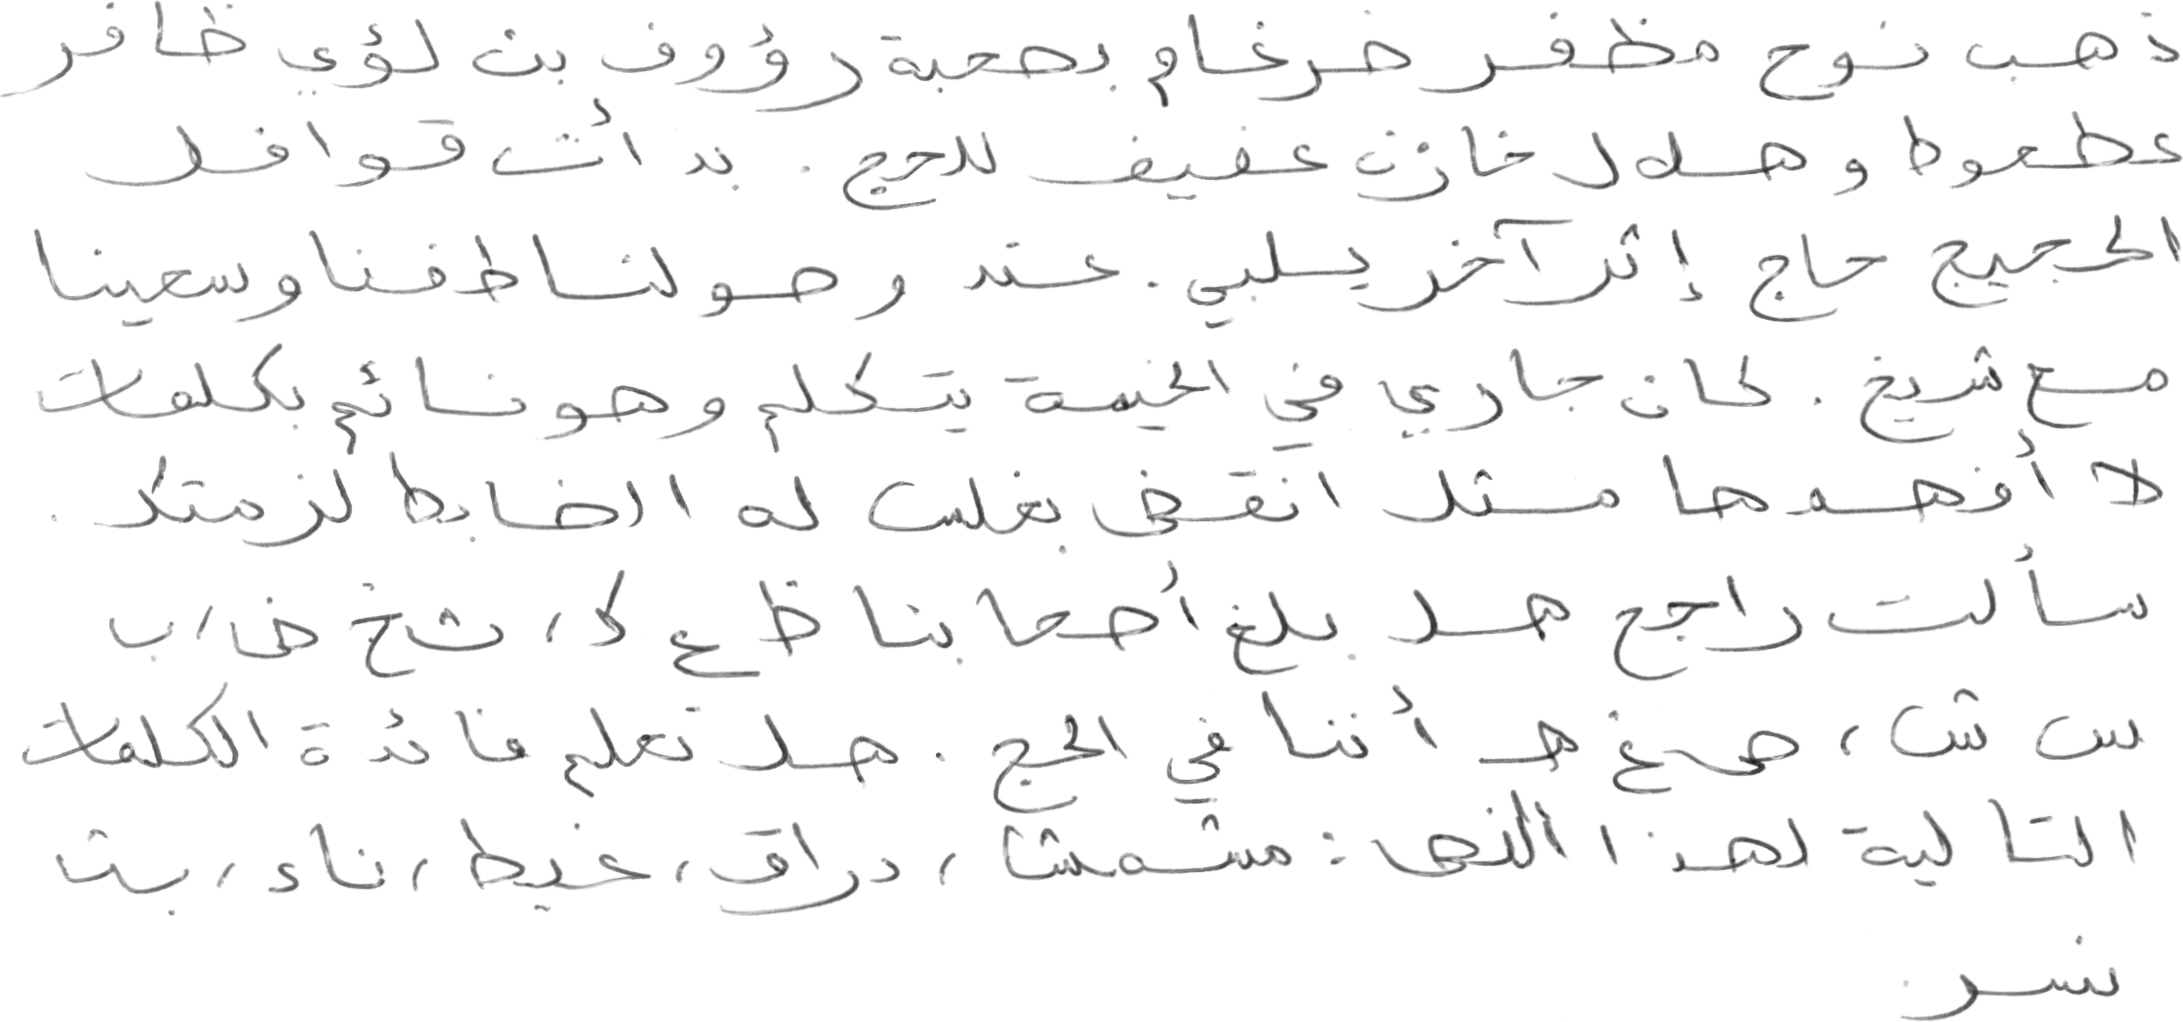 ذهب نوح مظفر ضرغام بصحبة رؤوف بن لؤي ظافر
عطعوط وهلال خازن عفيف للحج . بدأت قوافل
الحجيج حاج إثر آخر يلبي . عند وصولنا طفنا وسعينا
مع شريخ . كان جاري في الخيمة يتكلم وهو نائم بكلمات
لا أفهمها مثل انقض بغلس له الضابط لزمتك .
سألت راجح هل بلغ أصحابنا ظ ع ك ، ث خ ض ، ب
س ش ، ص غ هـ أننا في الحج . هل تعلم فائدة الكلمات
التالية لهذا النص : مشمشا ، دراق ، غيط ، ناء ، بث
نسر